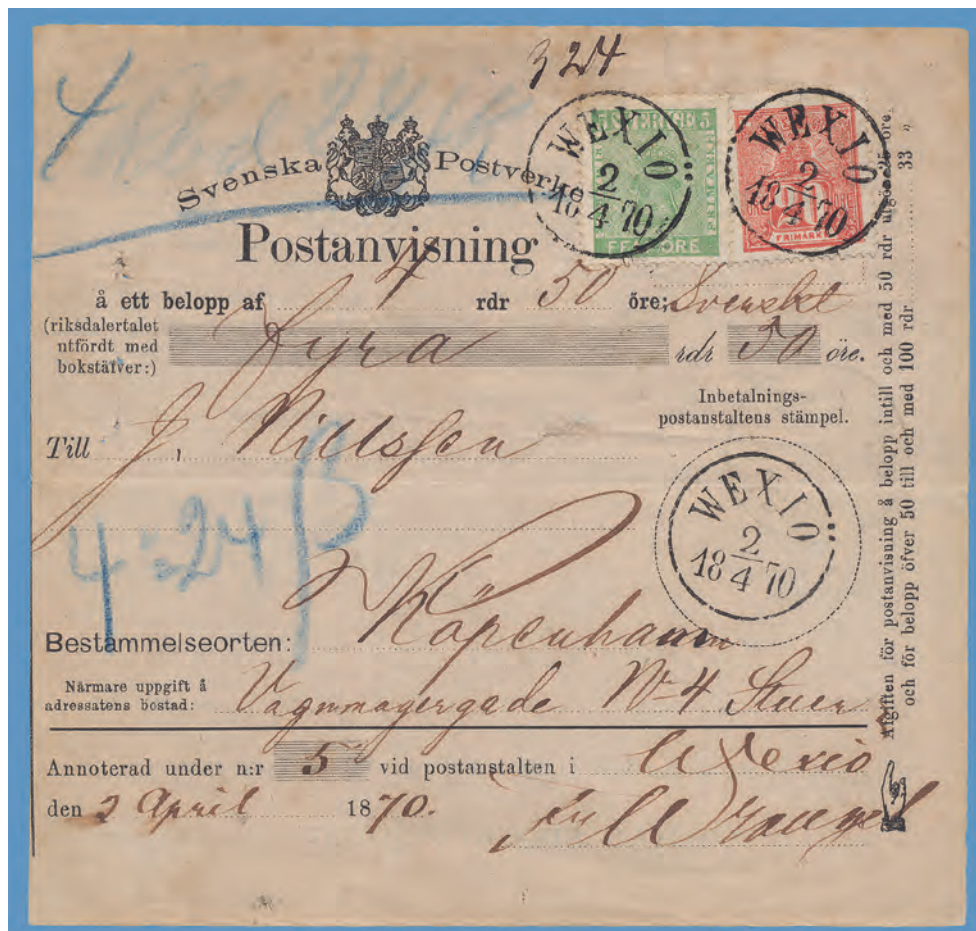 324
4
Svenska Postverket
SVERIGE
5 5
FRIMÄRKE
FEM ÖRE
WEXIÖ
2/4
18 70
20
FRIMÄRKE
WEXIÖ
2/4
18 70
Postanvisning
å ett belopp af 4 rdr 50 öre; Svenskt
(riksdalertalet
utfördt med
bokstäfver:)
Fyra rdr 50 öre.
Inbetalnings-
postanstaltens stämpel.
Till J. Nillsson
4:24 β
WEXIÖ
2/4
18 70
Bestämmelseorten: Köpenhamn
Närmare uppgift å
adressatens bostad: Vagnmagergade No 4 Stuen
Annoterad under n:r 5 vid postanstalten i Wexiö
den 2 April 1870.
Wrangel
Afgiften för postanvisning å belopp intill och med 50 rdr utgör 25 öre,
och för belopp öfver 50 till och med 100 rdr 33 „